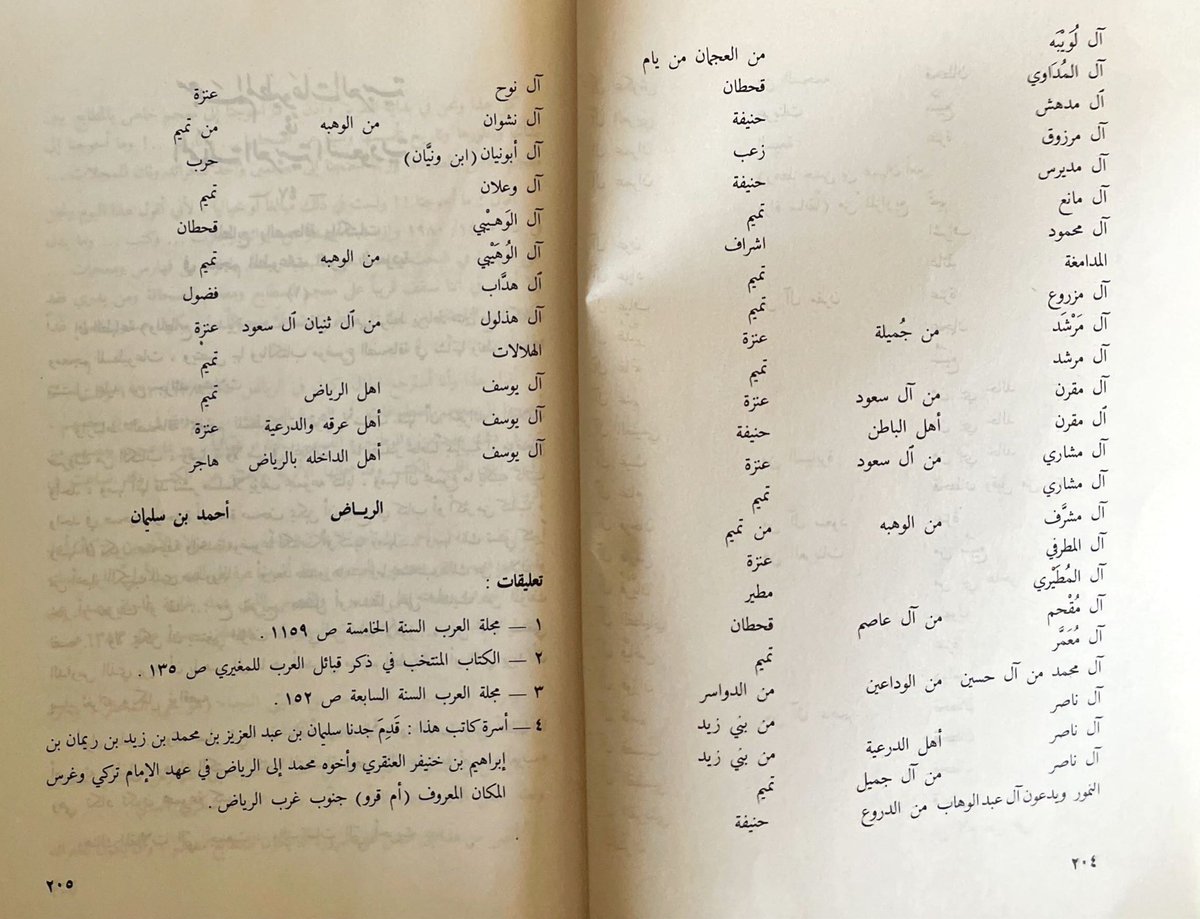 آل لُوَيْبَه من العجمان من يام
آل المُدَاوي قحطان
آل مدهش حنيفة
آل مرزوق زعب
آل مديرس حنيفة
آل مانع تميم
آل محمود اشراف
المدامغة تميم
آل مزروع تميم
آل مَرْشَد من جُميلة عنزة
آل مرشد تميم
آل مقرن من آل سعود عنزة
آل مقرن أهل الباطن حنيفة
آل مشاري من آل سعود عنزة
آل مشاري تميم
آل مشرَّف من الوهبه من تميم
آل المطرفي عنزة
آل المُطَيْري مطير
آل مُقْحم من آل عاصم قحطان
آل مُعَمَّر تميم
آل محمد من آل حسين من الوداعين من الدواسر
آل ناصر من بني زيد
آل ناصر أهل الدرعية من بني زيد
آل ناصر من آل جميل تميم
النمور ويدعون آل عبد الوهاب من الدروع حنيفة
٢٠٤
آل نوح عنزة
آل نشوان من الوهبه من تميم
آل أبونيان (ابن ونيَّان) حرب
آل وعلان تميم
آل الوَهيْبي قحطان
آل الوُهَيْبي من الوهبه تميم
آل هدَّاب فضول
آل هذلول من آل ثنيان آل سعود عنزة
الهلالات تميم
آل يوسف اهل الرياض تميم
آل يوسف أهل عرقه والدرعية عنزة
آل يوسف أهل الداخله بالرياض هاجر
الرياض أحمد بن سليمان
تعليقات :
١ — مجلة العرب السنة الخامسة ص ١١٥٩ .
٢ — الكتاب المنتخب في ذكر قبائل العرب للمغيري ص ١٣٥ .
٣ — مجلة العرب السنة السابعة ص ١٥٢ .
٤ — أسرة كاتب هذا : قَدِمَ جدنا سليمان بن عبد العزيز بن محمد بن زيد بن ريمان بن
إبراهيم بن خنيفر العنقري وأخوه محمد إلى الرياض في عهد الإمام تركي وغرس
المكان المعروف (أم قرو) جنوب غرب الرياض .
٢٠٥